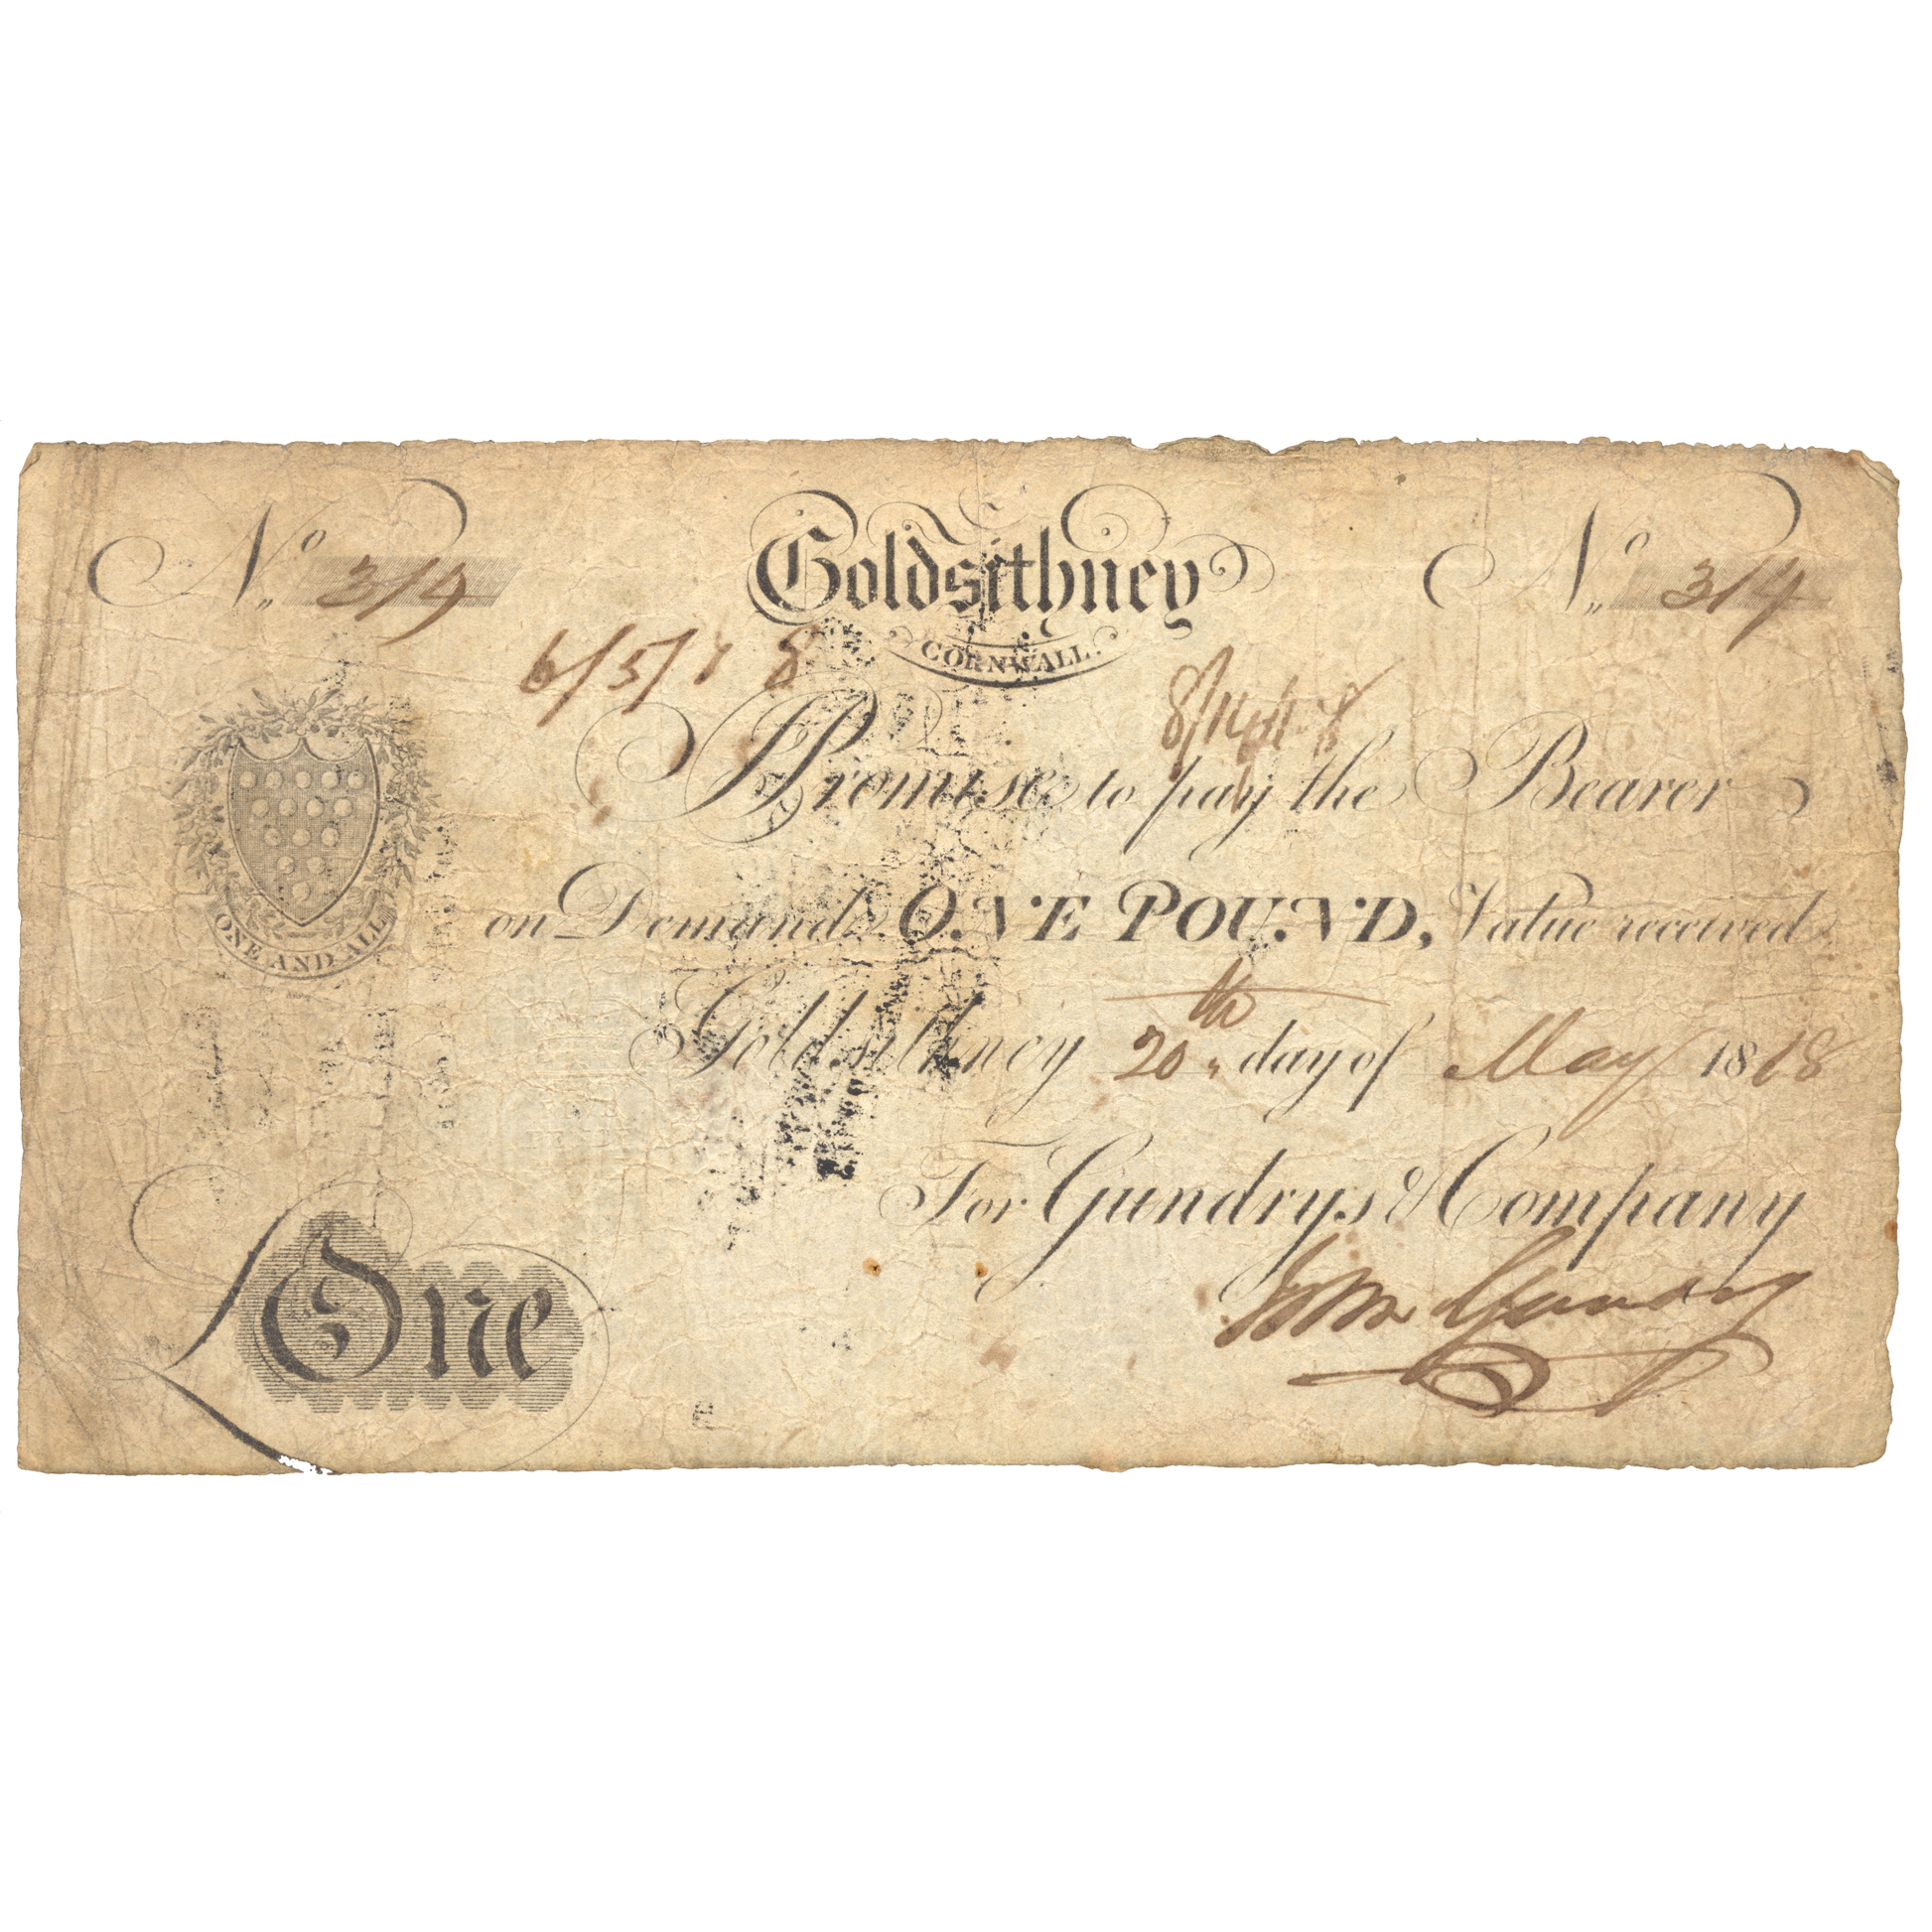 No 314
Goldsithney
No 314
CORNWALL.
6/5/18
I Promise to pay the Bearer
on Demand ONE POUND, Value received
Goldsithney 20th day of May 1818
ONE AND ALL
For Gundrys & Company
John Gundry
One